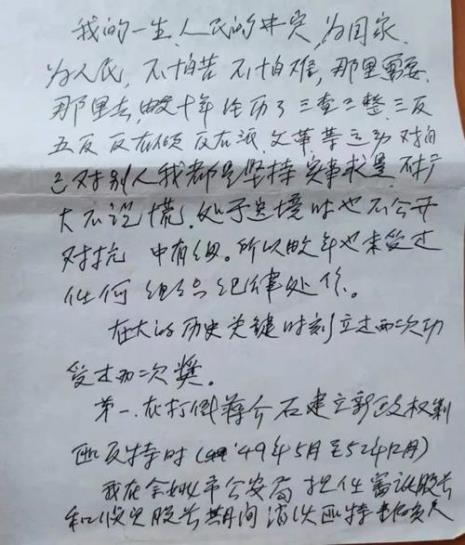 我的一生,人民的忠实,为国家
为人民,不怕苦不怕难,那里需要
那里去,数十年经历了三查三整、三反
五反 反右倾 反右派、文革等运动 对自
己对别人我都是坚持实事求是 不
大不说谎。处于 境时也不公开
对抗 中有级。所以数年也未受过
任何组织纪律处份。
在大的历史关键时刻立过两次功
受过两次奖。
第一,在打倒蒋介石建立新政权剿
匪反特时('49年5月至52年12月)
我在余姚市公安局 担任审讯股长
和 股长共间消 匪特